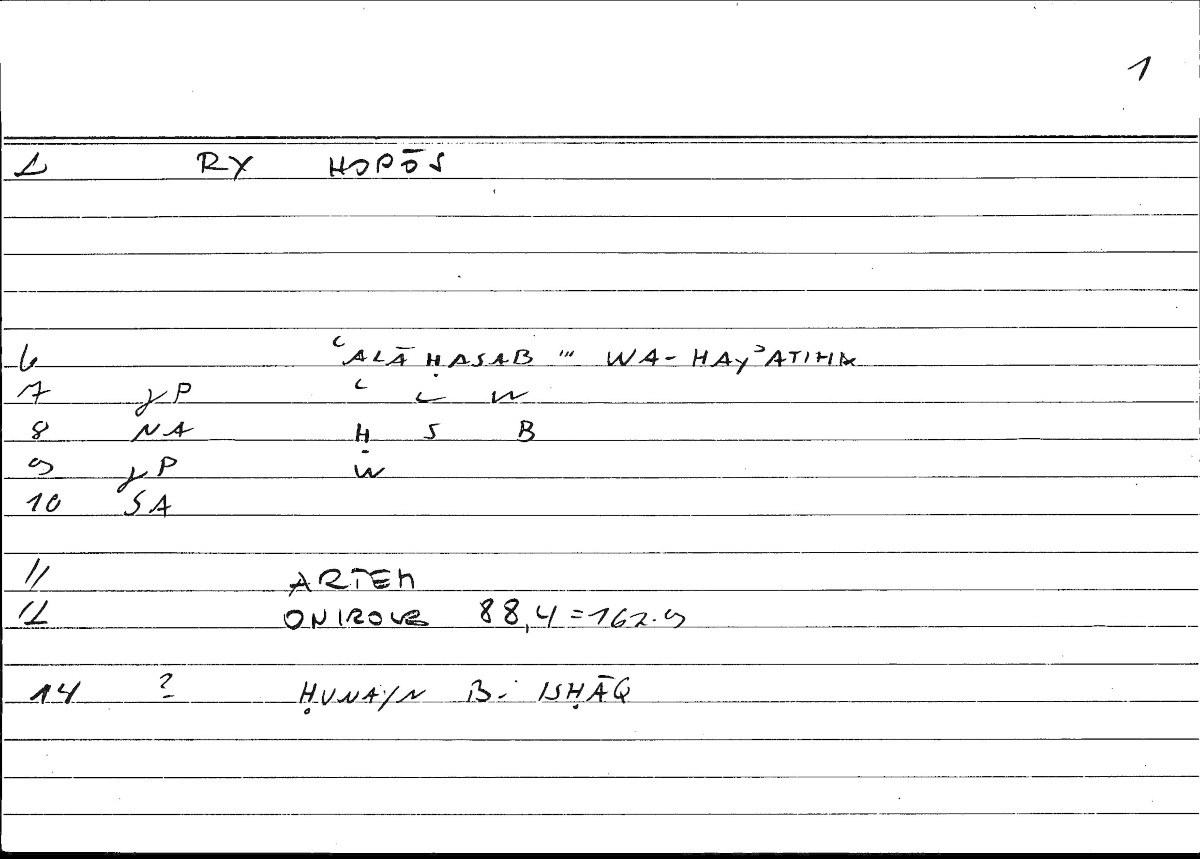 1
1 RY HOPŌS
6 ʿALĀ ḤASAB ''' WA-HAYʾATIHA
7 γP ʿ L W
8 NA Ḥ S B
9 γP W
10 SA
11 ARTEM
12 ONIROCR 88,4=162.9
14 ? ḤUNAYN B. ISḤĀQ